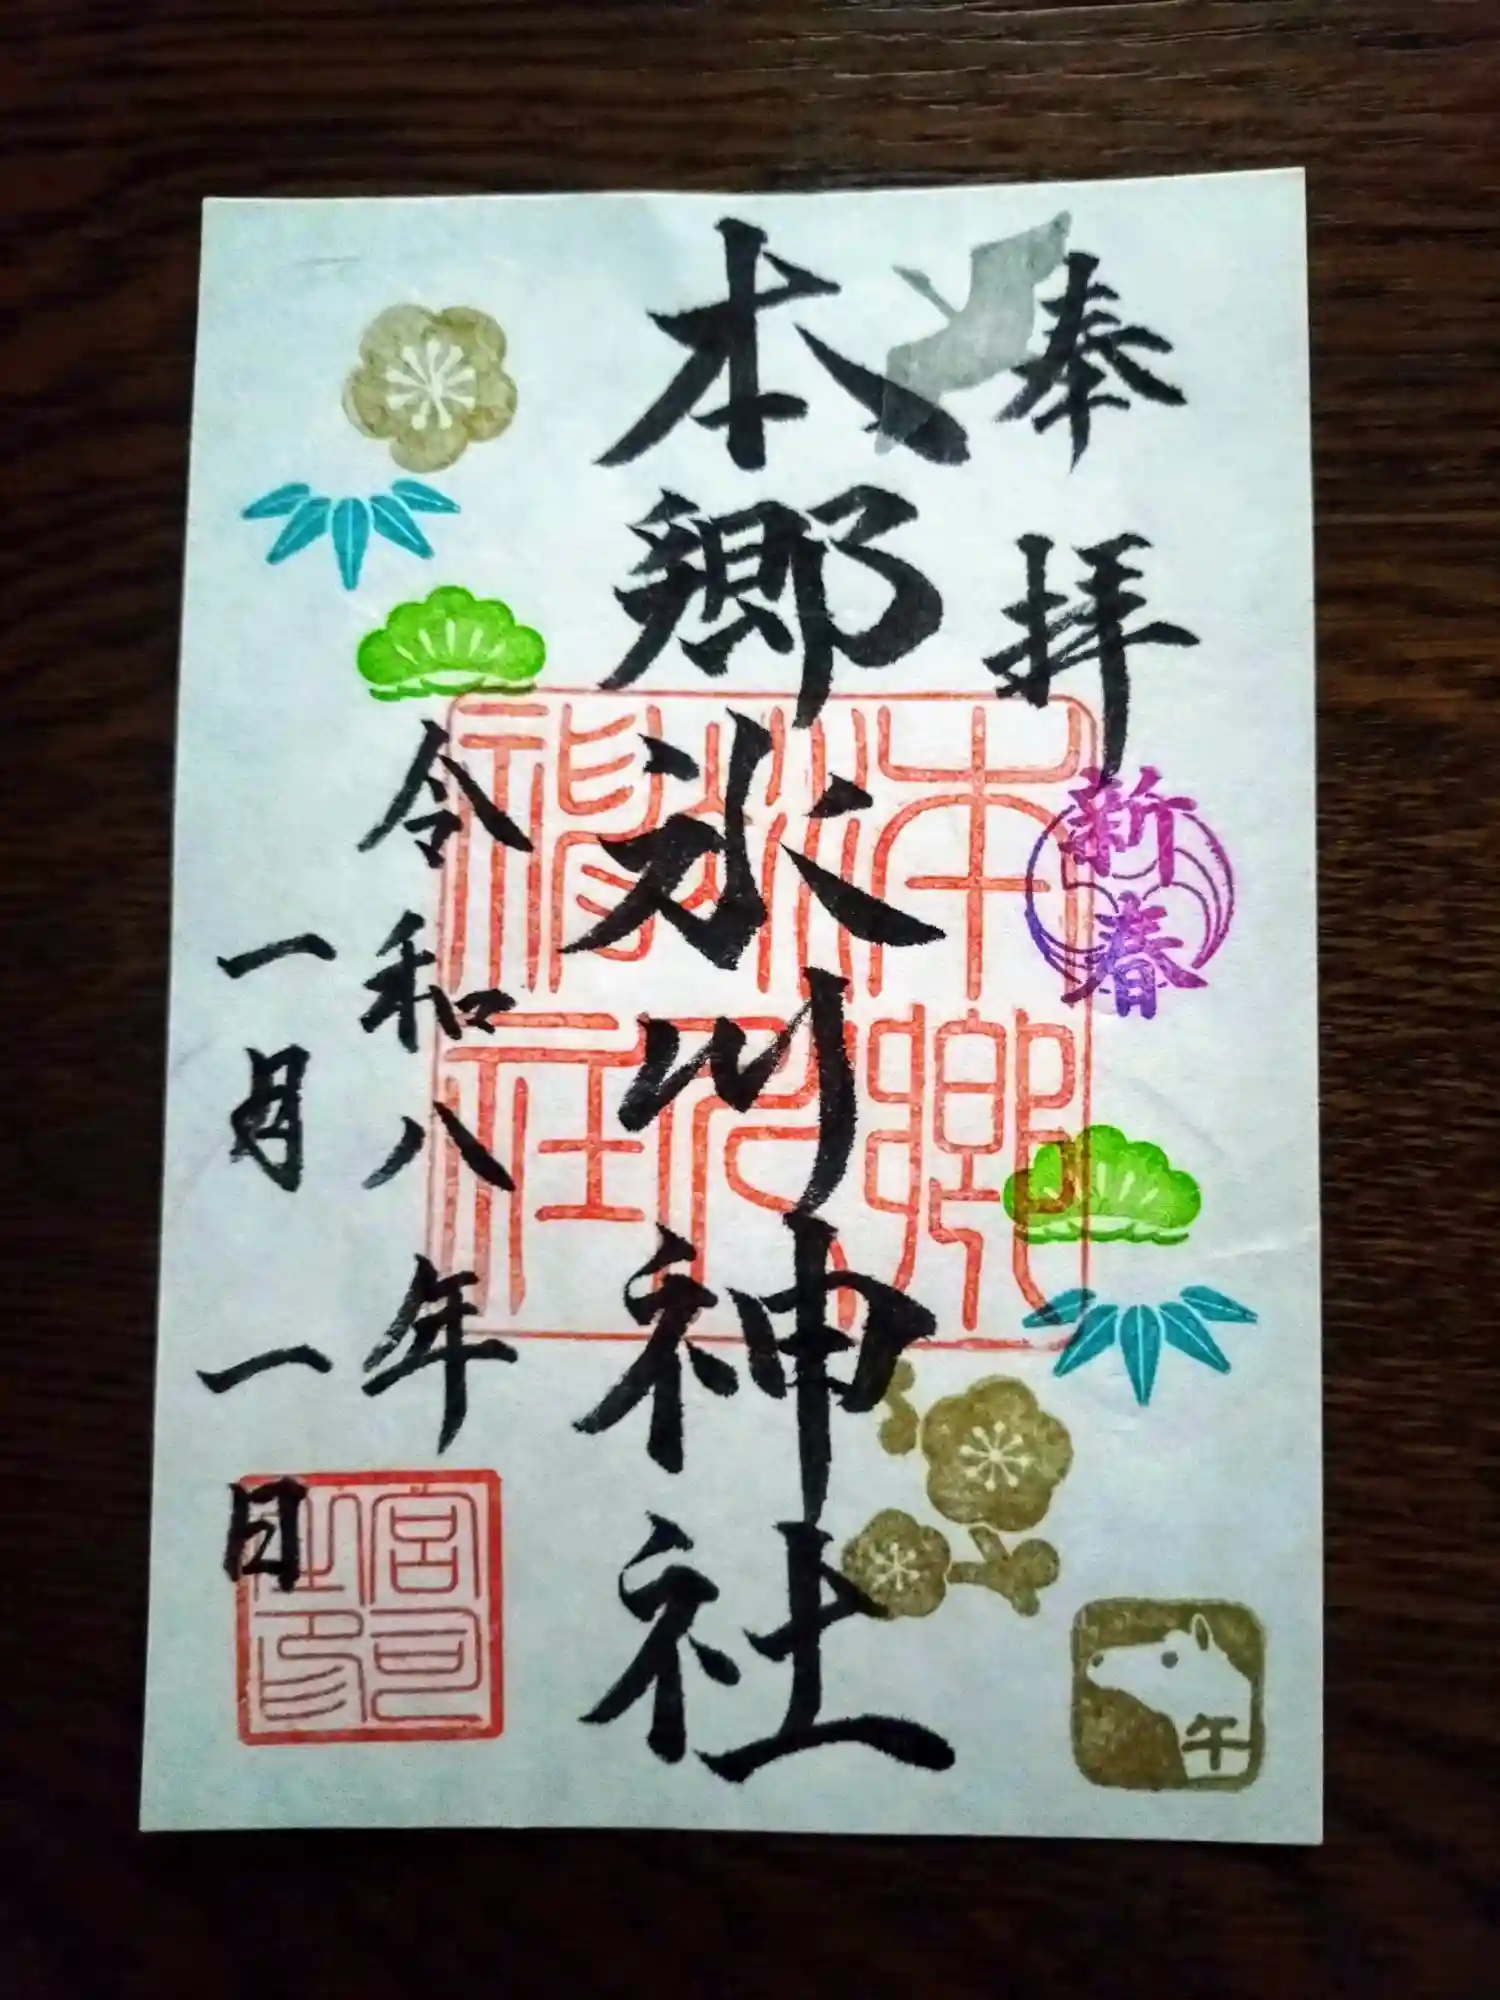 奉拝
新春
本郷氷川神社
本郷
氷川
神社
令和八年
一月一日
宮司
之印
午